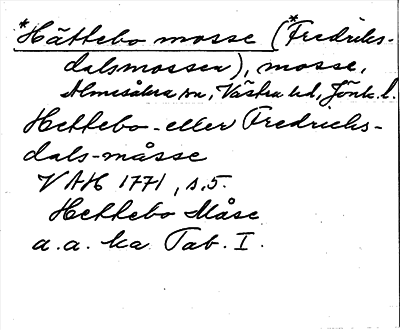 *Hättebo mosse (*Fredriks-
dalsmossen), mosse,
Almesåkra sn, Västra hd, Jönk. l.
Hettebo- eller Fredrichs-
dals-måsse
VAH 1771, s. 5.
Hettebo Måse
a.a. ka Tab. I.